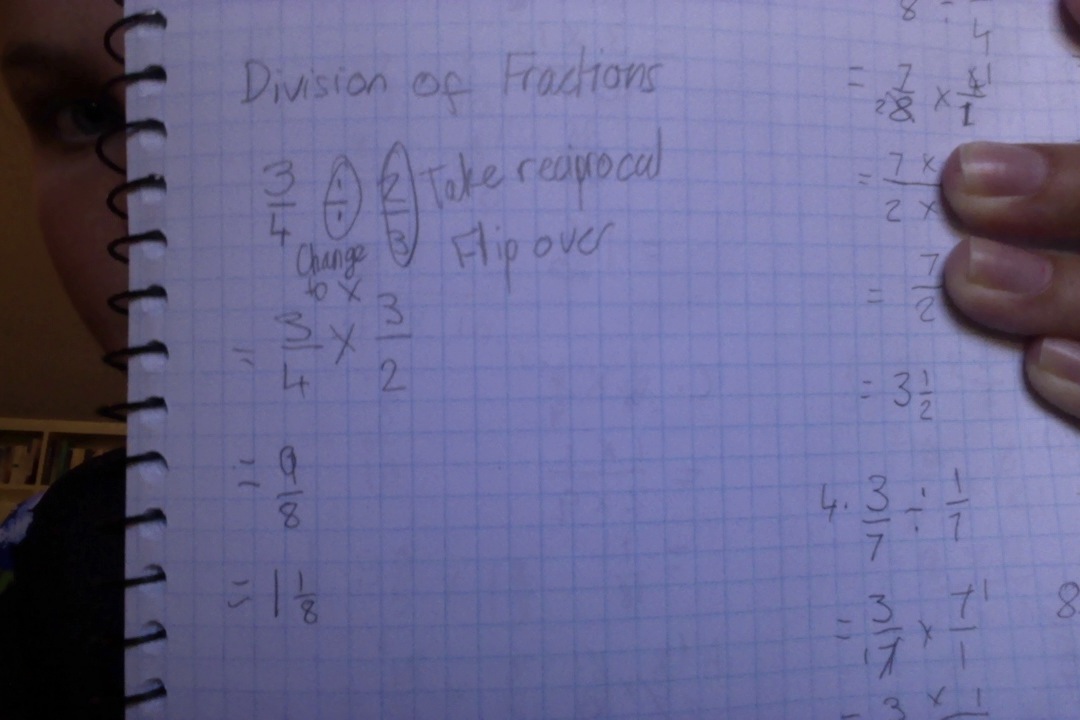 Division of Fractions
3/4 ÷ 2/3 Take reciprocal
Change to × Flip over
= 3/4 × 3/2
= 9/8
= 1 1/8
8 ÷
4
= 7/8 2 × 4/1 1
= 7 ×
2 ×
= 7/2
= 3 1/2
4. 3/7 ÷ 1/7
= 3/7 1 × 7/1 1
8
= 3 × 1